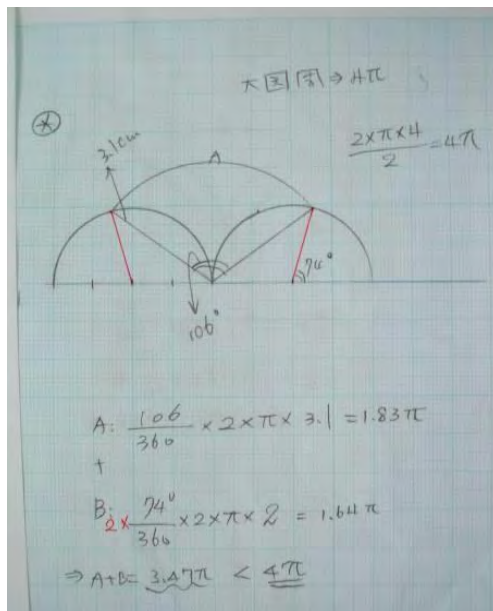 大圓周⇒4π
*
3.1cm
A
2×π×4 / 2 = 4π
74°
106°
A: 106 / 360 × 2 × π × 3.1 = 1.83π
+
B: 2× 74° / 360 × 2 × π × 2 = 1.64π
⇒ A+B= 3.47π < 4π